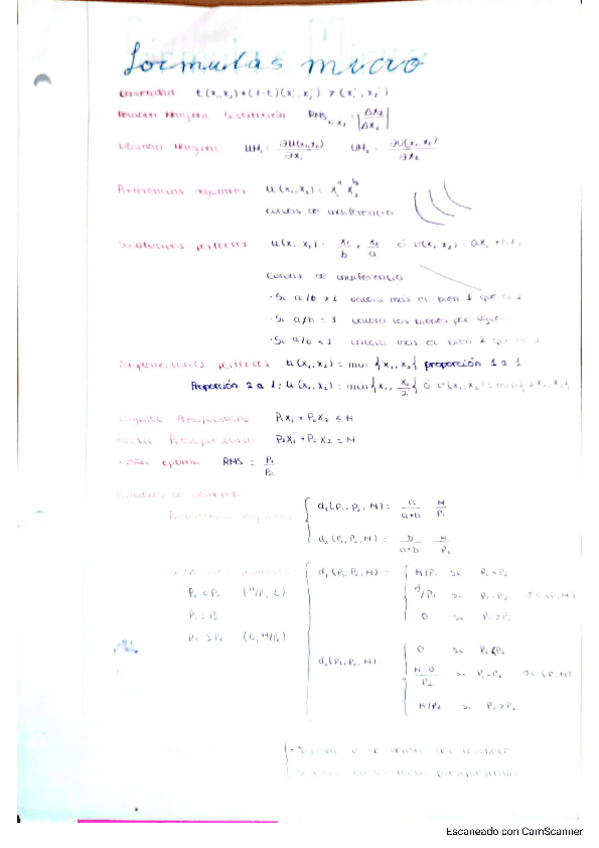 Fórmulas micro
Convexidad t(x₁,x₂)+(1-t)(x₁',x₂') > (x₁',x₂')
Relación Marginal Sustitución RMS x₁,x₂ = |Δx₂/Δx₁|
Utilidad Marginal UM₁ = ∂U(x₁,x₂)/∂x₁ UM₂ = ∂U(x₁,x₂)/∂x₂
Preferencias regulares U(x₁,x₂) = x₁ᵃ x₂ᵇ
curvas de indiferencia
Sustitutivos perfectos U(x₁,x₂) = x₁/b + x₂/a ó v(x₁,x₂) = ax₁ + bx₂
curvas de indiferencia
· Si a/b > 1 valora más el bien 1 que el 2
· Si a/b = 1 valora los bienes por igual
· Si a/b < 1 valora más el bien 2 que el 1
Complementarios perfectos U(x₁,x₂) = min{x₁,x₂} proporción 1 a 1
Proporción 2 a 1: U(x₁,x₂) = min{x₁, x₂/2} ó v(x₁,x₂) = min{2x₁,x₂}
Conjunto Presupuestario P₁x₁ + P₂x₂ ≤ M
Recta Presupuestaria P₁x₁ + P₂x₂ = M
óptima RMS = P₁/P₂
Funciones de demanda
Preferencias regulares d₁(P₁,P₂,M) = a/(a+b) M/P₁
d₂(P₁,P₂,M) = b/(a+b) M/P₂
d₁(P₁,P₂,M) = M/P₁ si P₁<P₂
P₁ < P₂ (M/P₁, 0) d/P₁ si P₁=P₂ d∈(0,M)
P₁ = P₂ 0 si P₁>P₂
P₁ > P₂ (0, M/P₂) 0 si P₁<P₂
d₂(P₁,P₂,M) = M-d/P₂ si P₁=P₂ d∈(0,M)
M/P₂ si P₁>P₂
Escaneado con CamScanner